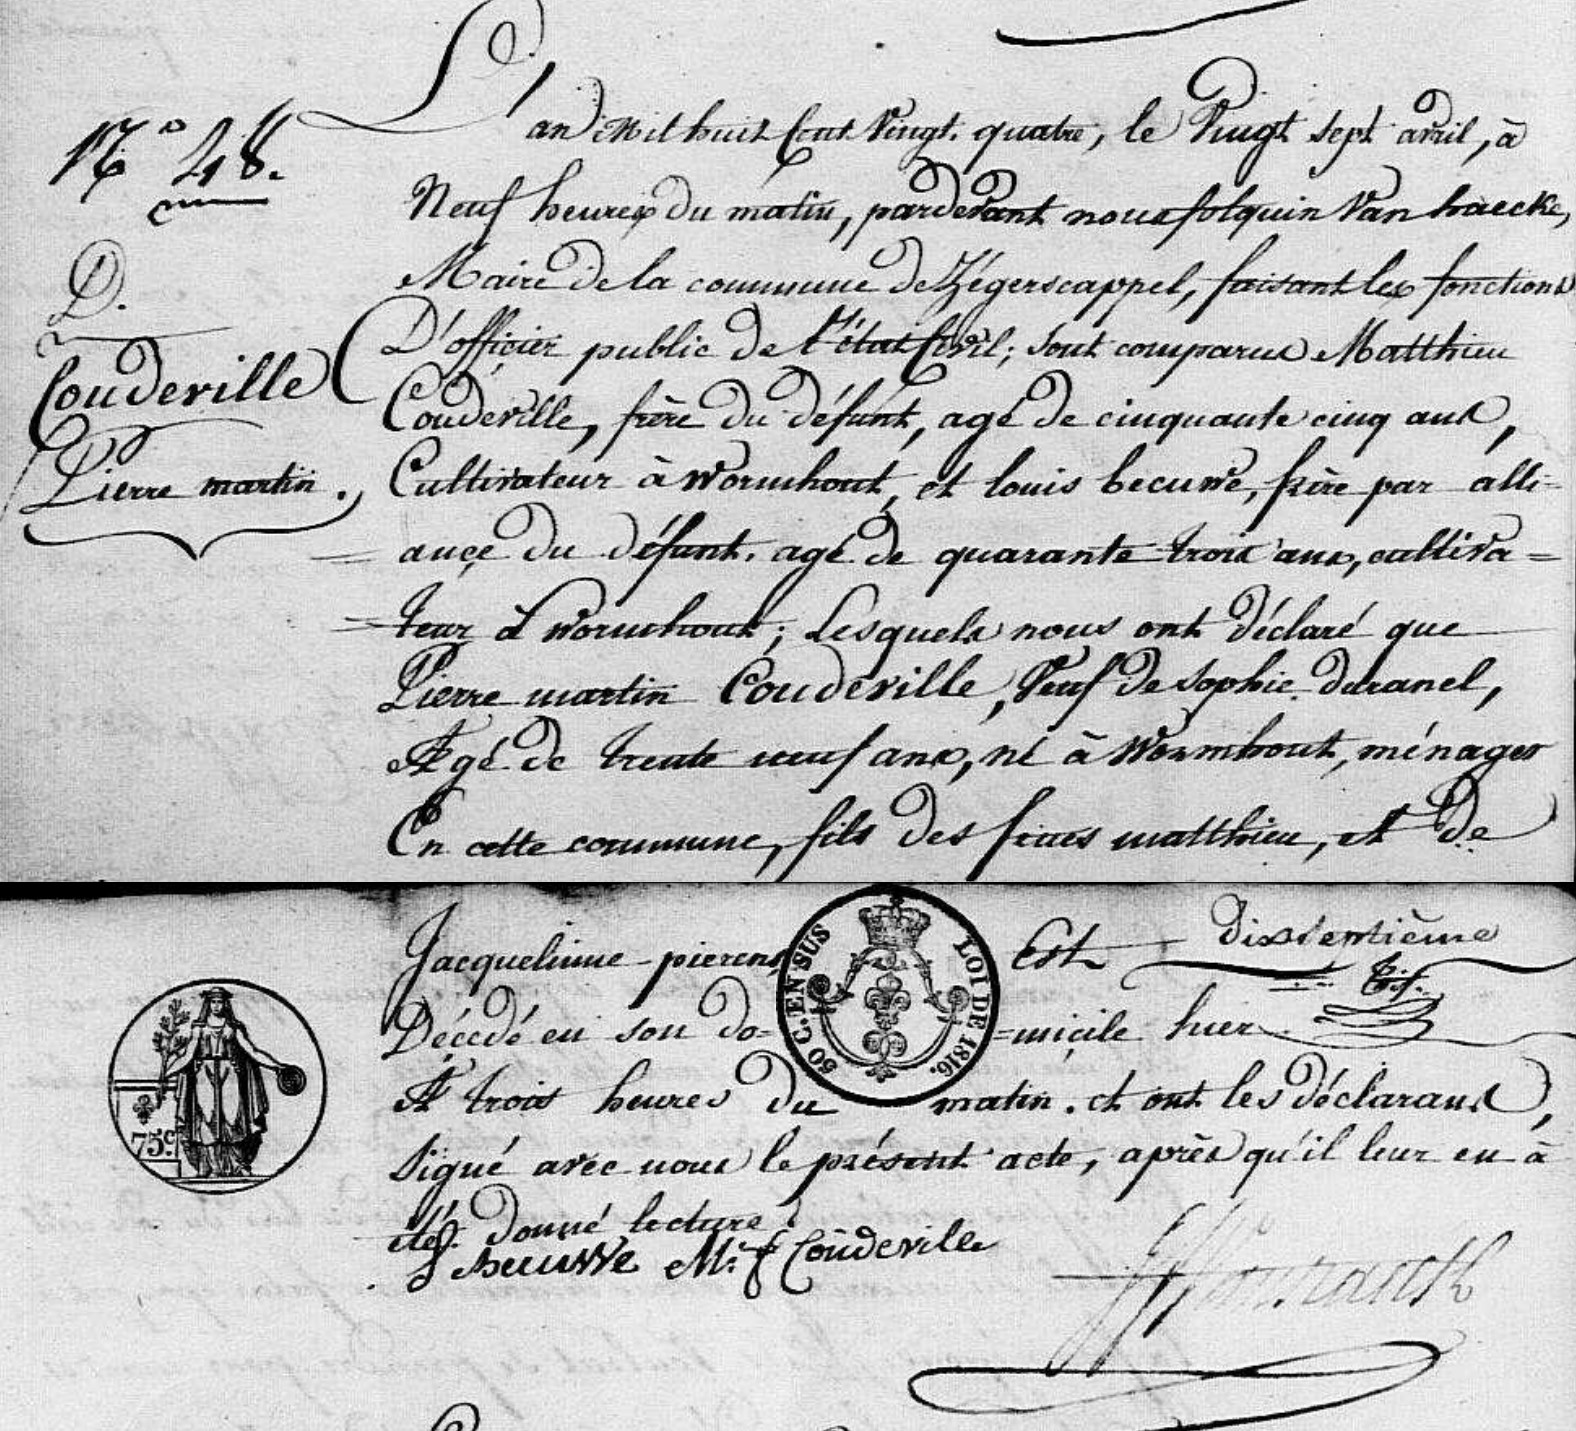 N.° 48.
D.
Coudeville
Pierre martin.
L'an Mil huit Cent Vingt. quatre, le Vingt sept avril, à
Neuf heures du matin, pardevant nous folquin Van haecke,
Maire de la commune de Zégerscappel, faisant les fonctions
D'officier public de l'état Civil; sont comparus Matthieu
Coudeville, frère du défunt, agé de cinquante cinq ans,
Cultivateur à Wormhout, et louis becuwe, frère par alli-
ance du défunt. agé de quarante trois ans, cultiva=
=teur à Wormhout; Lesquels nous ont déclaré que
Pierre martin Coudeville, Veuf de Sophie duranel,
Agé de trente neuf ans, né à Wormhout, ménager
En cette commune, fils des feues matthieu, et De
Jacquelinne pierens Est dixseptième
Décédé en son do= =micile hier
A trois heures du matin. et ont les déclarans,
Signé avec nous le présent acte, après qu'il leur en à
été donné lecture
L becuwe M: f Coudeville
50 C. EN SUS LOI DE 1816.
75.c